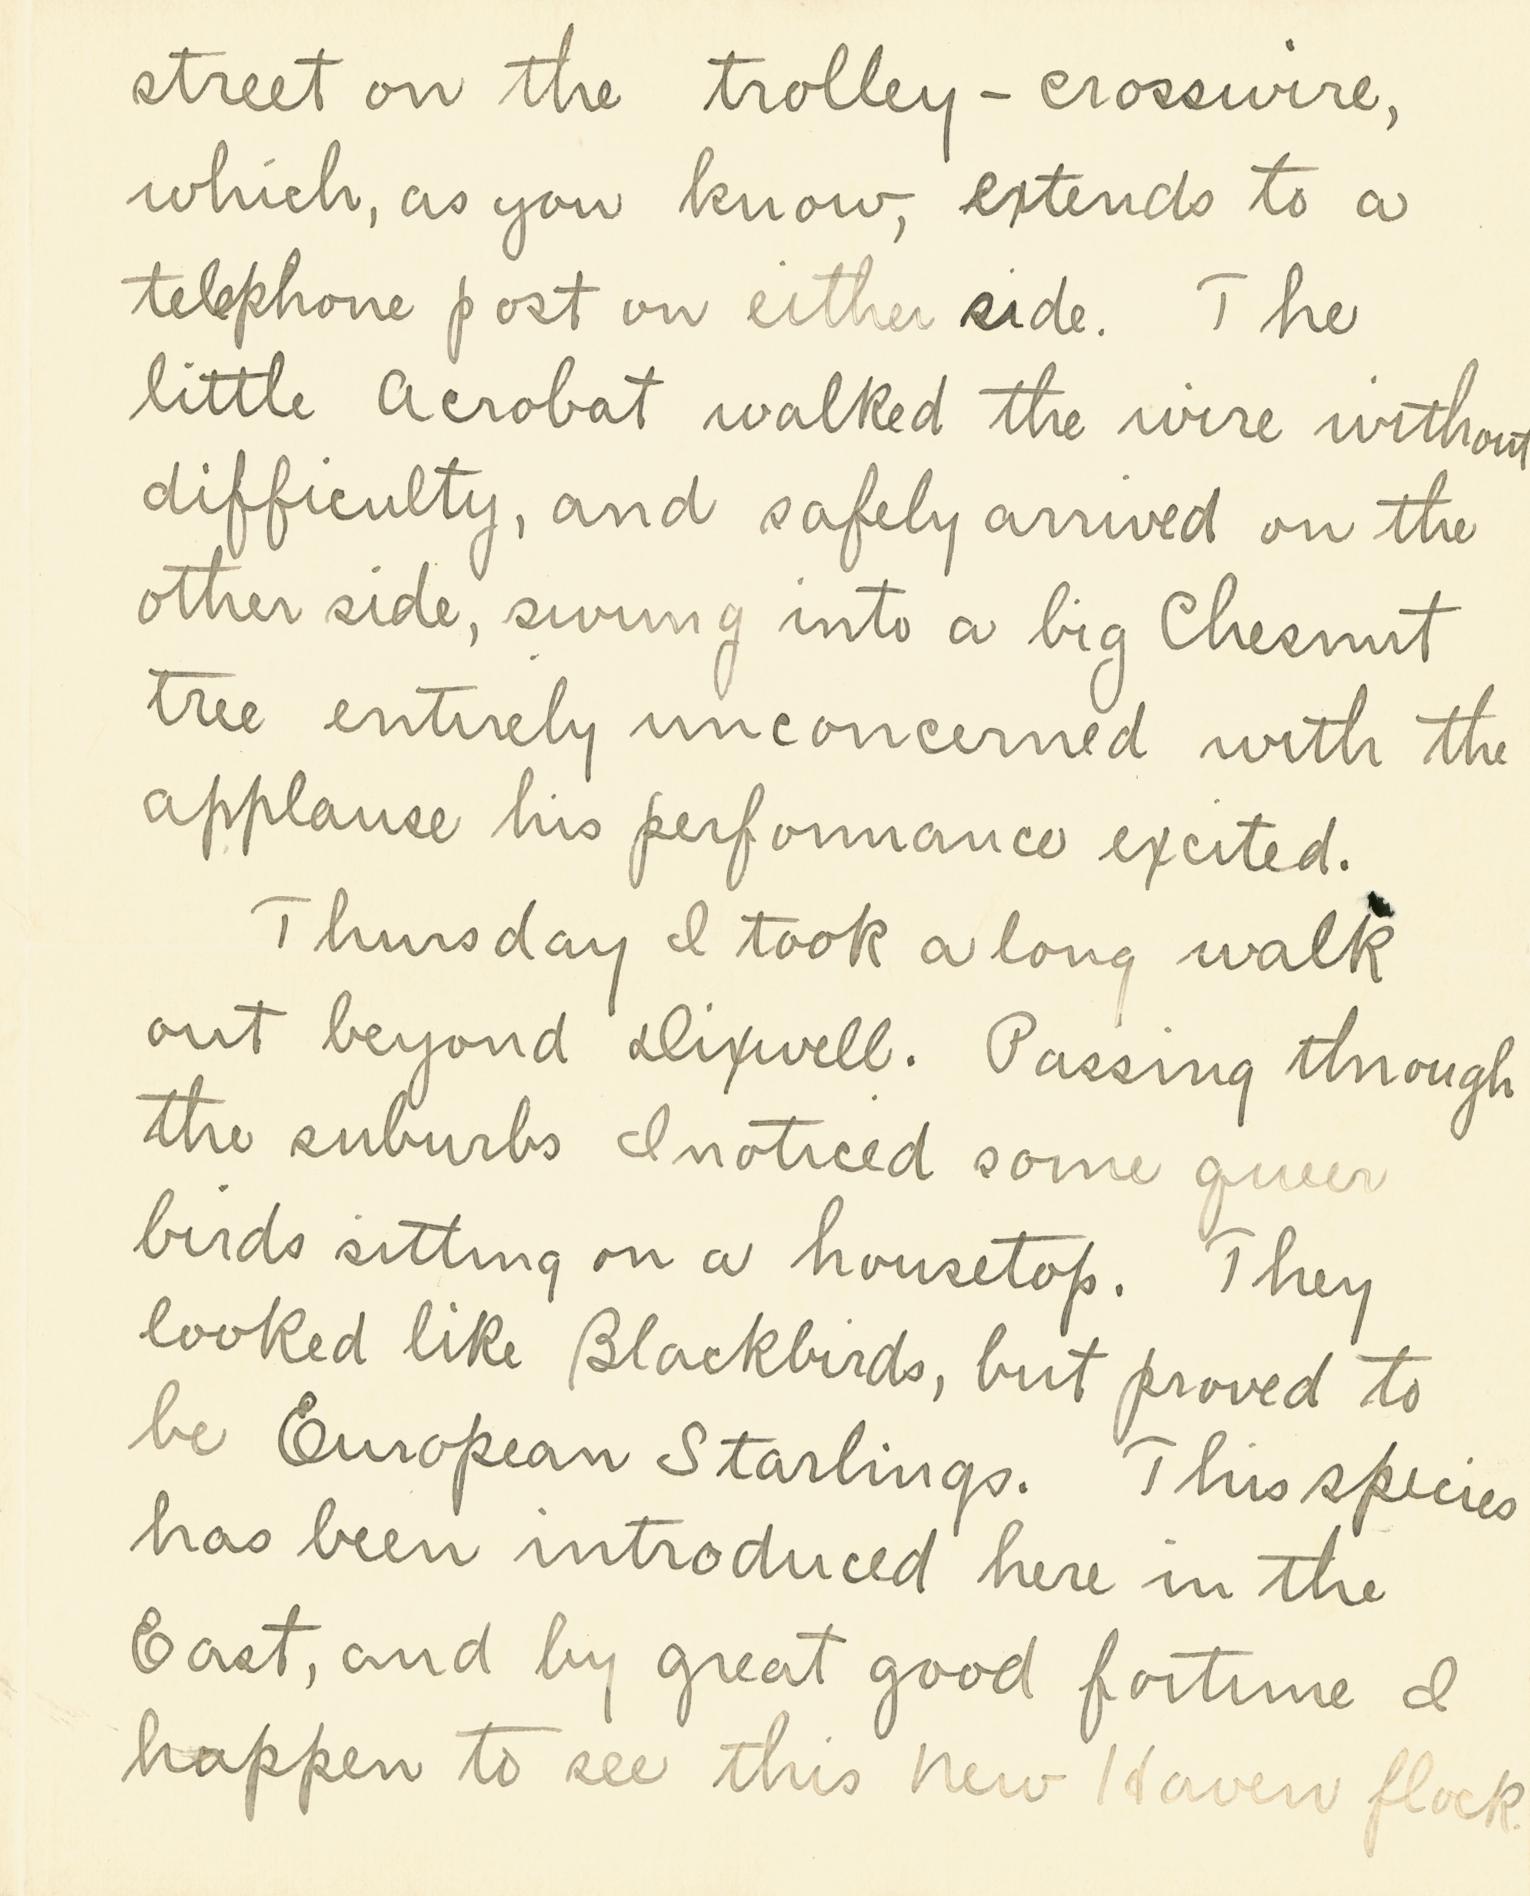 street on the trolley-crosswire,
which, as you know, extends to a
telephone post on either side. The
little acrobat walked the wire without
difficulty, and safely arrived on the
other side, swung into a big Chesnut
tree entirely unconcerned with the
applause his performance excited.
Thursday I took a long walk
out beyond Dixwell. Passing through
the suburbs I noticed some queer
birds sitting on a housetop. They
looked like Blackbirds, but proved to
be European Starlings. This species
has been introduced here in the
East, and by great good fortune I
happen to see this New Haven flock.